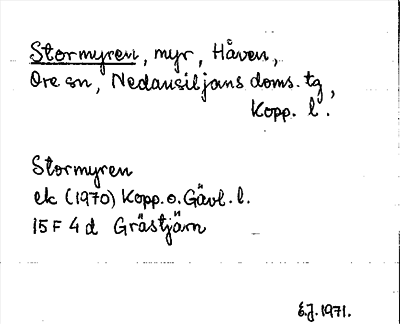 Stormyren, myr, Håven,
Ore sn, Nedansiljans doms. tg,
Kopp. l.
Stormyren
ek (1970) Kopp. o. Gävl. l.
15 F 4 d Grästjärn
E.J. 1971.